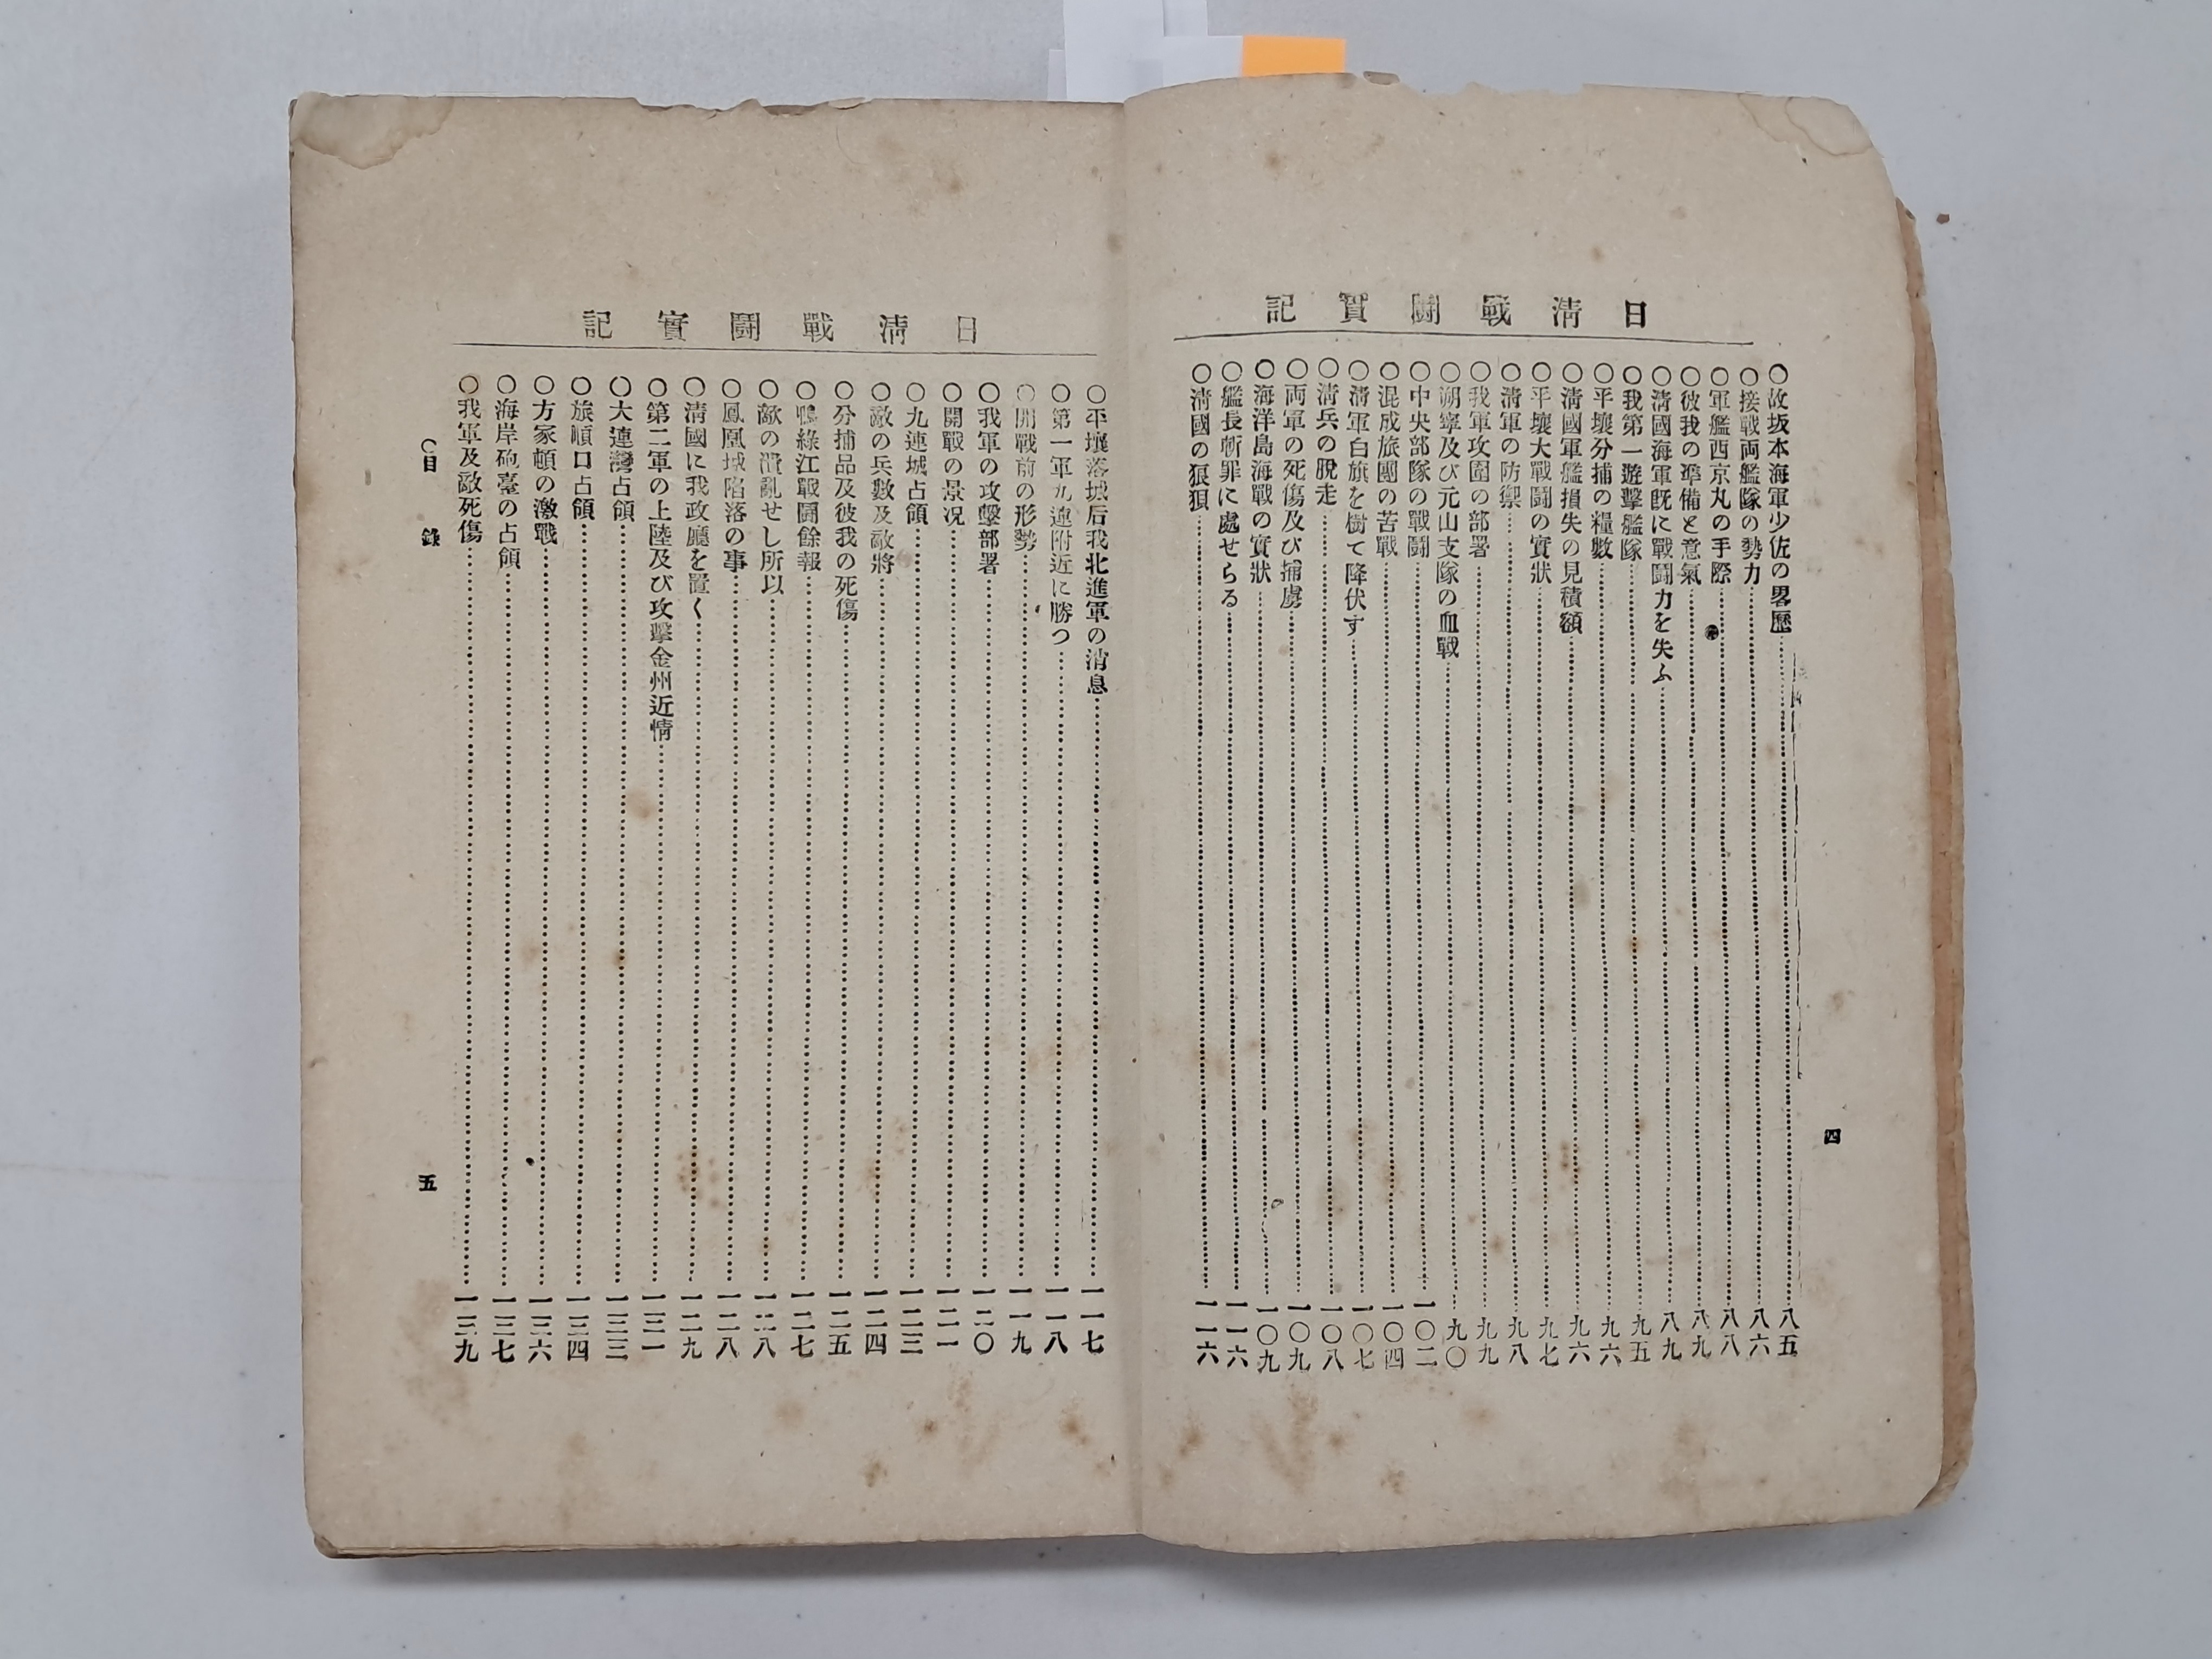 日清戰鬪實記
○故坂本海軍少佐の畧歷……八五
○接戰両艦隊の勢力……八六
○軍艦西京丸の手際……八八
○彼我の準備と意氣……八九
○淸國海軍旣に戰鬪力を失ふ……八九
○我第一遊擊艦隊……九五
○平壤分捕の糧數……九六
○淸國軍艦損失の見積額……九六
○平壤大戰鬪の實狀……九七
○淸軍の防禦……九八
○我軍攻圍の部署……九九
○朔寧及び元山支隊の血戰……九〇
○中央部隊の戰鬪……一〇二
○混成旅團の苦戰……一〇四
○淸軍白旗を樹て降伏す……一〇七
○淸兵の脫走……一〇八
○両軍の死傷及び捕虜……一〇九
○海洋島海戰の實狀……一〇九
○艦長斬罪に處せらる……一一六
○淸國の狼狽……一一六
四
日清戰鬪實記
○平壤落城后我北進軍の消息……一一七
○第一軍九連附近に勝つ……一一八
○開戰前の形勢……一一九
○我軍の攻擊部署……一二〇
○開戰の景况……一二一
○九連城占領……一二三
○敵の兵數及敵將……一二四
○分捕品及彼我の死傷……一二五
○鴨綠江戰鬪餘報……一二七
○敵の潰亂せし所以……一二八
○鳳凰城陷落の事……一二八
○淸國に我政廳を置く……一二九
○第二軍の上陸及び攻擊金州近情……一三一
○大連灣占領……一三三
○旅順口占領……一三四
○方家頓の激戰……一三六
○海岸砲臺の占領……一三七
○我軍及敵死傷……一三九
○目錄
五